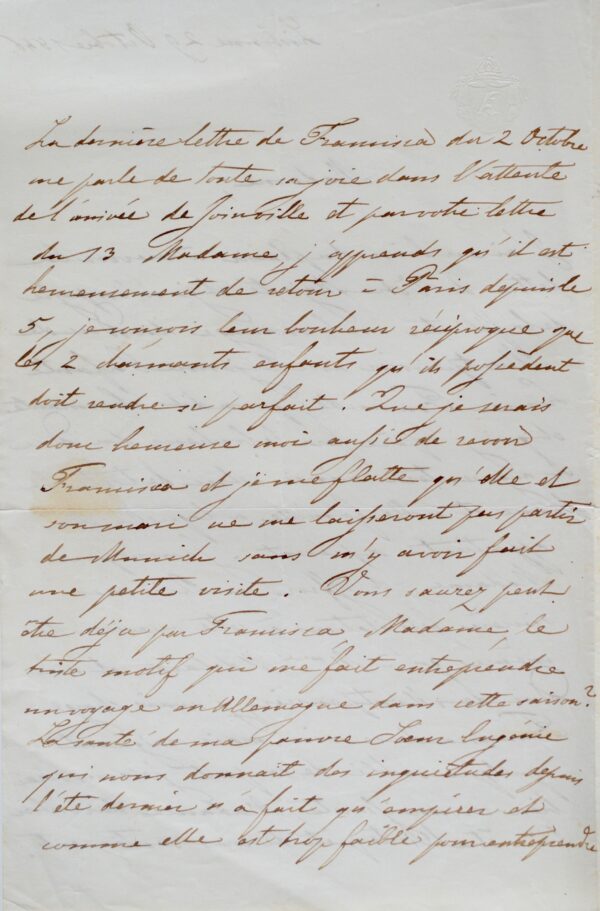 La dernière lettre de Francisca du 2 Octobre
me parle de toute sa joie dans l'attente
de l'arrivée de Joinville et par votre lettre
du 13 Madame, j'apprends qu'il est
heureusement de retour à Paris depuis le
5, je conçois leur bonheur réciproque que
les 2 charmants enfants qu'ils possèdent
doit rendre si parfait. Que je serais
donc heureuse moi aussi de revoir
Francisca et je me flatte qu'elle et
son mari ne me laisseront pas partir
de Munich sans m'y avoir fait
une petite visite. Vous saurez peut
être déja par Francisca Madame, le
triste motif qui me fait entreprendre
un voyage en Allemagne dans cette saison?
La santé de ma pauvre Soeur Eugénie
qui nous donnait des inquiétudes depuis
l'été dernier n'a fait qu'empirer et
comme elle est trop faible pour entreprendre